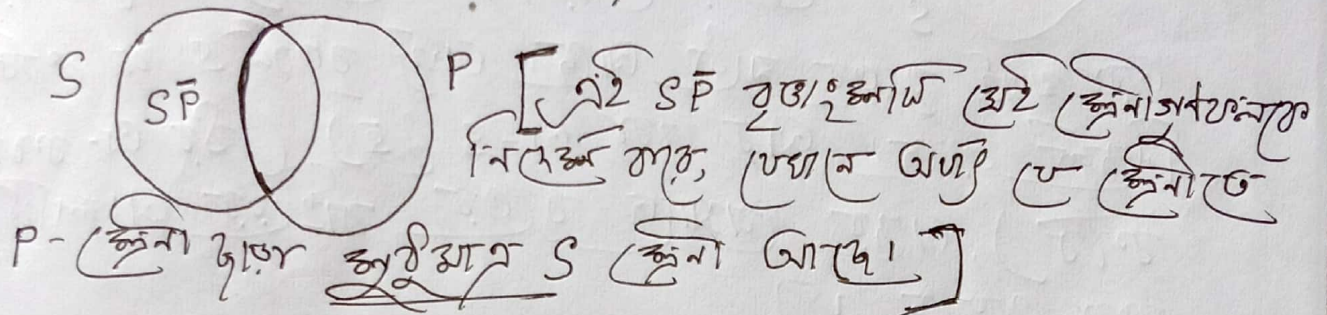 S SP̄ P [এই SP̄ বৃত্তাংশটি সেই শ্রেনীগণফলকে
নির্দেশ করে, যেখানে অর্থাৎ যে শ্রেনীতে
P-শ্রেনী ছাড়া শুধুমাত্র S শ্রেনী আছে।]